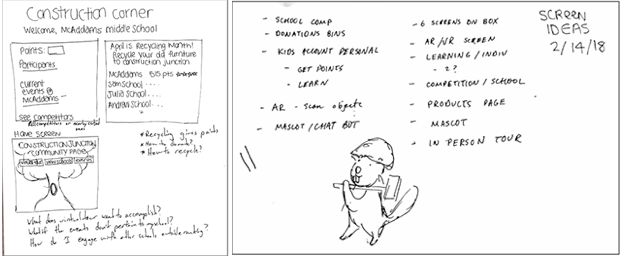 Construction corner
Welcome, McAddams middle school
Points:
Participants
Current
events @
McAddams
See competitors
April is Recycling Month!
Recycle your old furniture
to construction junction
McAddams 515 pts
Sam School ....
Julia School ....
Andrea School ...
HOME SCREEN
CONSTRUCTION JUNCTION
COMMUNITY PAGE
* Recycling gives points
* How to donate?
* How to recycle?
What does virtual tour want to accomplish?
What if the events don't pertain to my school?
How do I engage with other schools outside reality?
- SCHOOL COMP
- DONATIONS BINS
- KIDS ACCOUNT PERSONAL
- GET POINTS
- LEARN
- AR - Scan objects
- MASCOT / CHAT BOT
- 6 SCREENS ON BOX
- AR/VR SCREEN
- LEARNING / INDIV
- 2?
- COMPETITION / SCHOOL
- PRODUCTS PAGE
- MASCOT
- IN PERSON TOUR
SCREEN
IDEAS
2/14/18